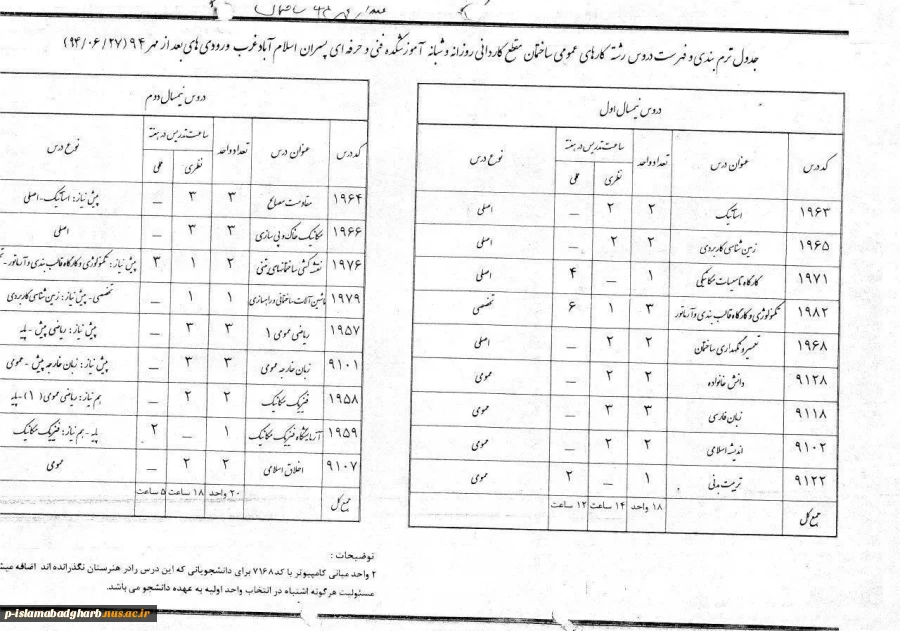 جدول ترم بندی و فهرست دروس رشته کارهای عمومی ساختمان مقطع کاردانی روزانه و شبانه آموزشکده فنی و حرفه ای پسران اسلام آباد غرب ورودی های بعد از مهر ۹۴ (۹۴/۰۶/۲۷)
دروس نیمسال اول
کد درس عنوان درس تعداد واحد ساعت تدریس در هفته نوع درس
نظری عملی
۱۹۶۳ استاتیک ۲ ۲ _ اصلی
۱۹۶۵ زمین شناسی کاربردی ۲ ۲ _ اصلی
۱۹۷۱ کارگاه تاسیسات مکانیکی ۱ _ ۴ اصلی
۱۹۸۲ تکنولوژی و کارگاه قالب بندی و آرماتور ۳ ۱ ۶ تخصصی
۱۹۶۸ تعمیر و نگهداری ساختمان ۲ ۲ _ اصلی
۹۱۲۸ دانش خانواده ۲ ۲ _ عمومی
۹۱۱۸ زبان فارسی ۳ ۳ _ عمومی
۹۱۰۲ اندیشه اسلامی ۲ ۲ _ عمومی
۹۱۲۲ تربیت بدنی ۱ _ ۲ عمومی
جمع کل ۱۸ واحد ۱۴ ساعت ۱۲ ساعت
دروس نیمسال دوم
کد درس عنوان درس تعداد واحد ساعت تدریس در هفته نوع درس
نظری عملی
۱۹۶۴ مقاومت مصالح ۳ ۳ _ پیش نیاز: استاتیک-اصلی
۱۹۶۶ مکانیک خاک و پی سازی ۳ ۳ _ اصلی
۱۹۷۶ نقشه کشی ساختمانهای بتنی ۲ ۱ ۳ پیش نیاز: تکنولوژی و کارگاه قالب بندی و آرماتور -
۱۹۷۹ ماشین آلات ساختمانی و راهسازی ۱ ۱ _ تخصصی - پیش نیاز: زمین شناسی کاربردی
۱۹۵۷ ریاضی عمومی ۱ ۳ ۳ _ پیش نیاز: ریاضی پیش - پایه
۹۱۰۱ زبان خارجه عمومی ۳ ۳ _ پیش نیاز: زبان خارجه پیش - عمومی
۱۹۵۸ فیزیک مکانیک ۲ ۲ _ هم نیاز: ریاضی عمومی (۱)-پایه
۱۹۵۹ آزمایشگاه فیزیک مکانیک ۱ _ ۲ پایه - هم نیاز: فیزیک مکانیک
۹۱۰۷ اخلاق اسلامی ۲ ۲ _ عمومی
جمع کل ۲۰ واحد ۱۸ ساعت ۵ ساعت
توضیحات :
۲ واحد مبانی کامپیوتر با کد ۷۱۶۸ برای دانشجویانی که این درس رادر هنرستان نگذرانده اند اضافه میش
مسئولیت هرگونه اشتباه در انتخاب واحد اولیه به عهده دانشجو می باشد.
p-islamabadgharb.nus.ac.ir